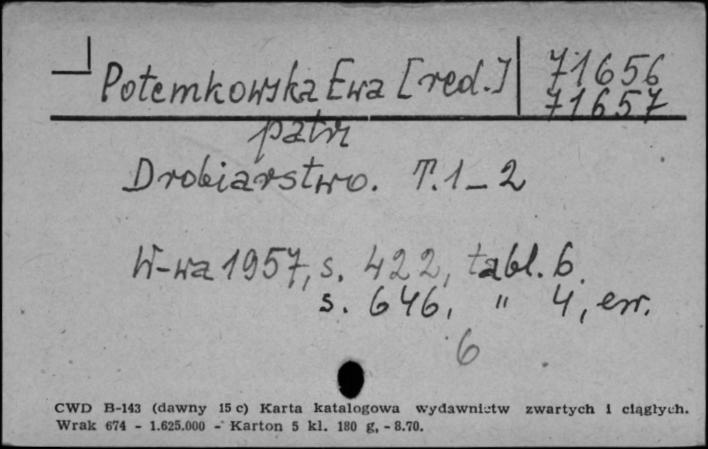 Potemkowska Ewa [red.] 71656
71657
patrz
Drobiarstwo. T.1-2
W-wa 1957, s. 422, tabl. 6.
s. 646, " 4, err.
6
CWD B-143 (dawny 15 c) Karta katalogowa wydawnictw zwartych i ciągłych.
Wrak 674 - 1.625.000 - Karton 5 kl. 180 g, - 8.70.